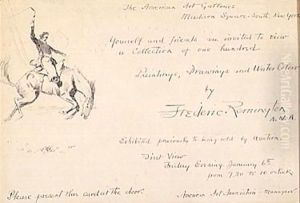 The American Art Galleries
Madison Square South, New York
Yourself and friends are invited to view
a Collection of one hundred
Paintings, Drawings and Water Colors
by
Frederic Remington
A.N.A.
Exhibited previously to being sold by Auction
First View
Friday Evening January 6th
from 7.30 to 10 o'clock
Please present this card at the door.
American Art Association - Managers